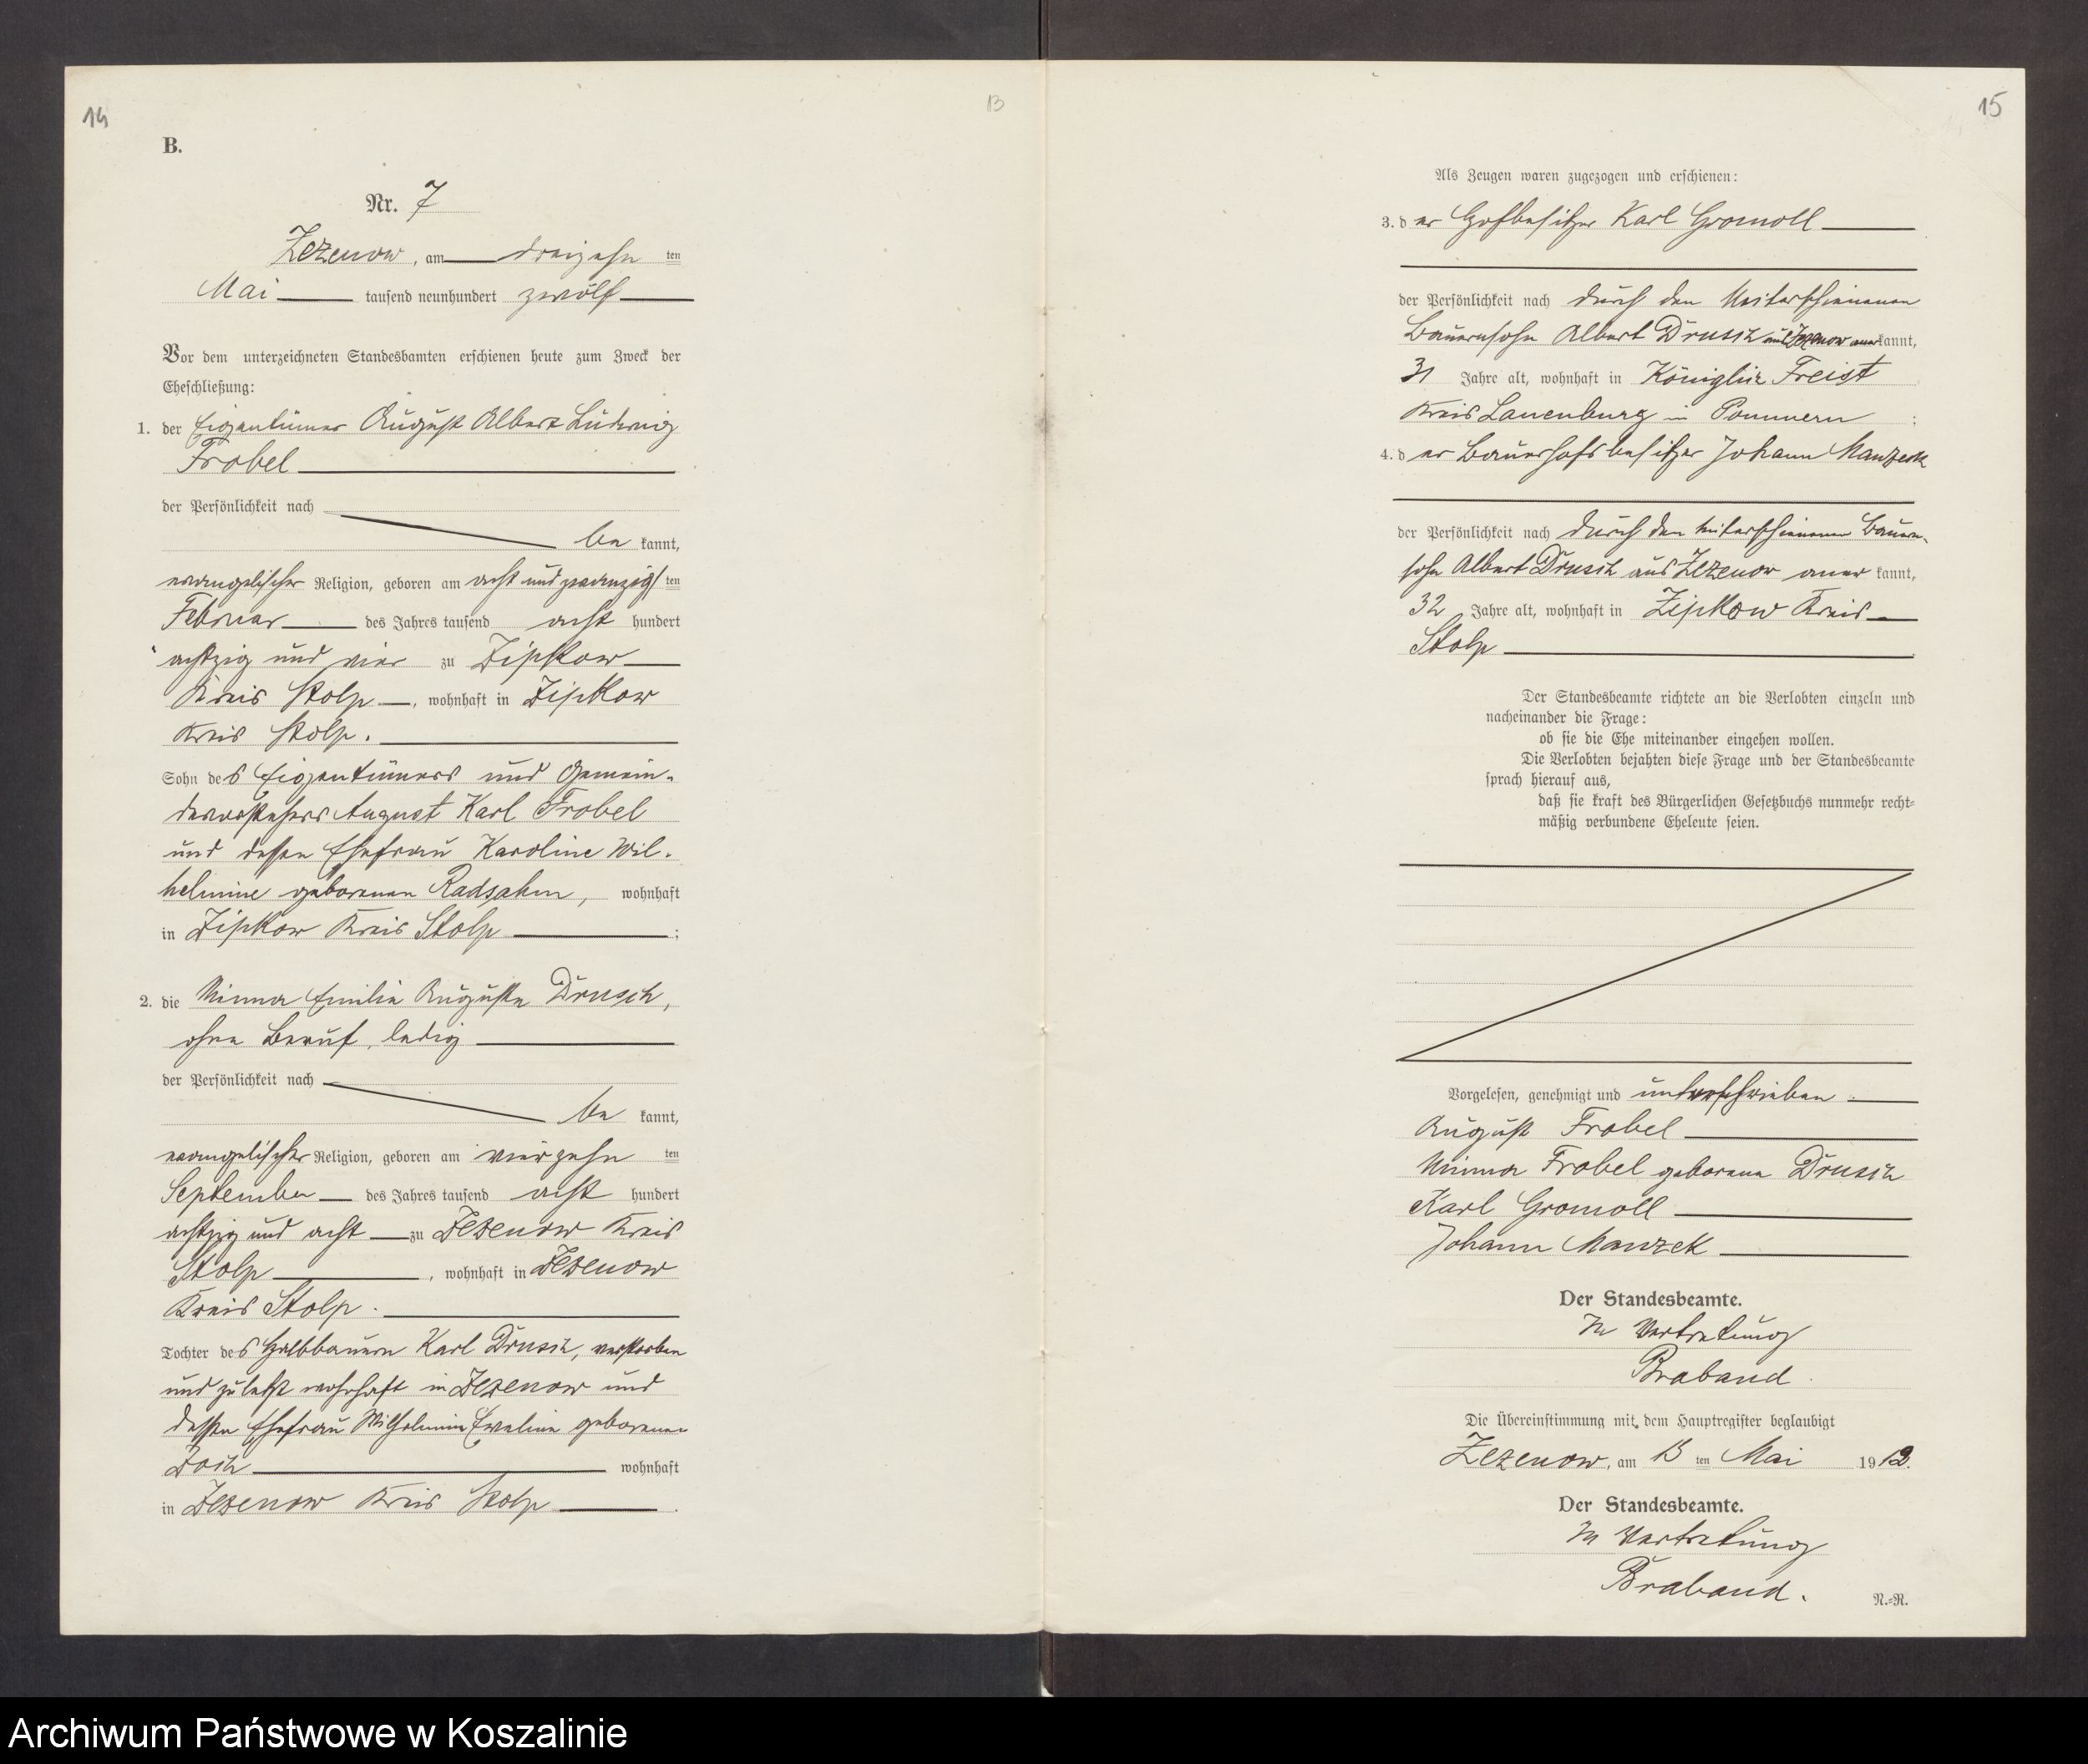 14
B.
Nr. 7
Zezenow, am dreizehn ten
Mai tausend neunhundert zwölf
Vor dem unterzeichneten Standesbamten erschienen heute zum Zweck der
Eheschließung:
1. der Eigentümer August Albert Ludwig
Frobel
der Persönlichkeit nach
be kannt,
evangelischer Religion, geboren am acht und zwanzigs ten
Februar des Jahres tausend acht hundert
achtzig und vier zu Zipkow
Kreis Stolp, wohnhaft in Zipkow
Kreis Stolp.
Sohn des Eigentümers und Gemein-
devorstehers August Karl Frobel
und dessen Ehefrau Karoline Wil-
helmine geborenen Radsahm, wohnhaft
in Zipkow Kreis Stolp ;
2. die Minna Emilie Auguste Drusch,
ohne Beruf, ledig
der Persönlichkeit nach
be kannt,
evangelischer Religion, geboren am vierzehn ten
September des Jahres tausend acht hundert
achtzig und acht zu Zezenow Kreis
Stolp, wohnhaft in Zezenow
Kreis Stolp.
Tochter des Halbbauern Karl Drusch, verstorben
und zuletzt wohnhaft in Zezenow und
dessen Ehefrau Wilhelmine Eveline geborenen
wohnhaft
in Zezenow Kreis Stolp .
13
15
Als Zeugen waren zugezogen und erschienen:
3. der Hofbesitzer Karl Gromoll
der Persönlichkeit nach durch den Miterschienenen
Bauernsohn Albert Drusch aus Zezenow anerkannt,
31 Jahre alt, wohnhaft in Königlich Freist
Kreis Lauenburg in Pommern ;
4. der Bauerhofsbesitzer Johann Manzeck
der Persönlichkeit nach durch den miterschienenen Bauern-
sohn Albert Drusch aus Zezenow aner kannt,
32 Jahre alt, wohnhaft in Zipkow Kreis
Stolp .
Der Standesbeamte richtete an die Verlobten einzeln und
nacheinander die Frage:
ob sie die Ehe miteinander eingehen wollen.
Die Verlobten bejahten diese Frage und der Standesbeamte
sprach hierauf aus,
daß sie kraft des Bürgerlichen Gesetzbuchs nunmehr recht-
mäßig verbundene Eheleute seien.
Vorgelesen, genehmigt und unterschrieben.
August Frobel
Minna Frobel geborene Drusch
Karl Gromoll
Johann Manzek
Der Standesbeamte.
In Vertretung
Braband.
Die Übereinstimmung mit dem Hauptregister beglaubigt
Zezenow, am 13 ten Mai 1912.
Der Standesbeamte.
In Vertretung
Braband.
N.-R.
Archiwum Państwowe w Koszalinie